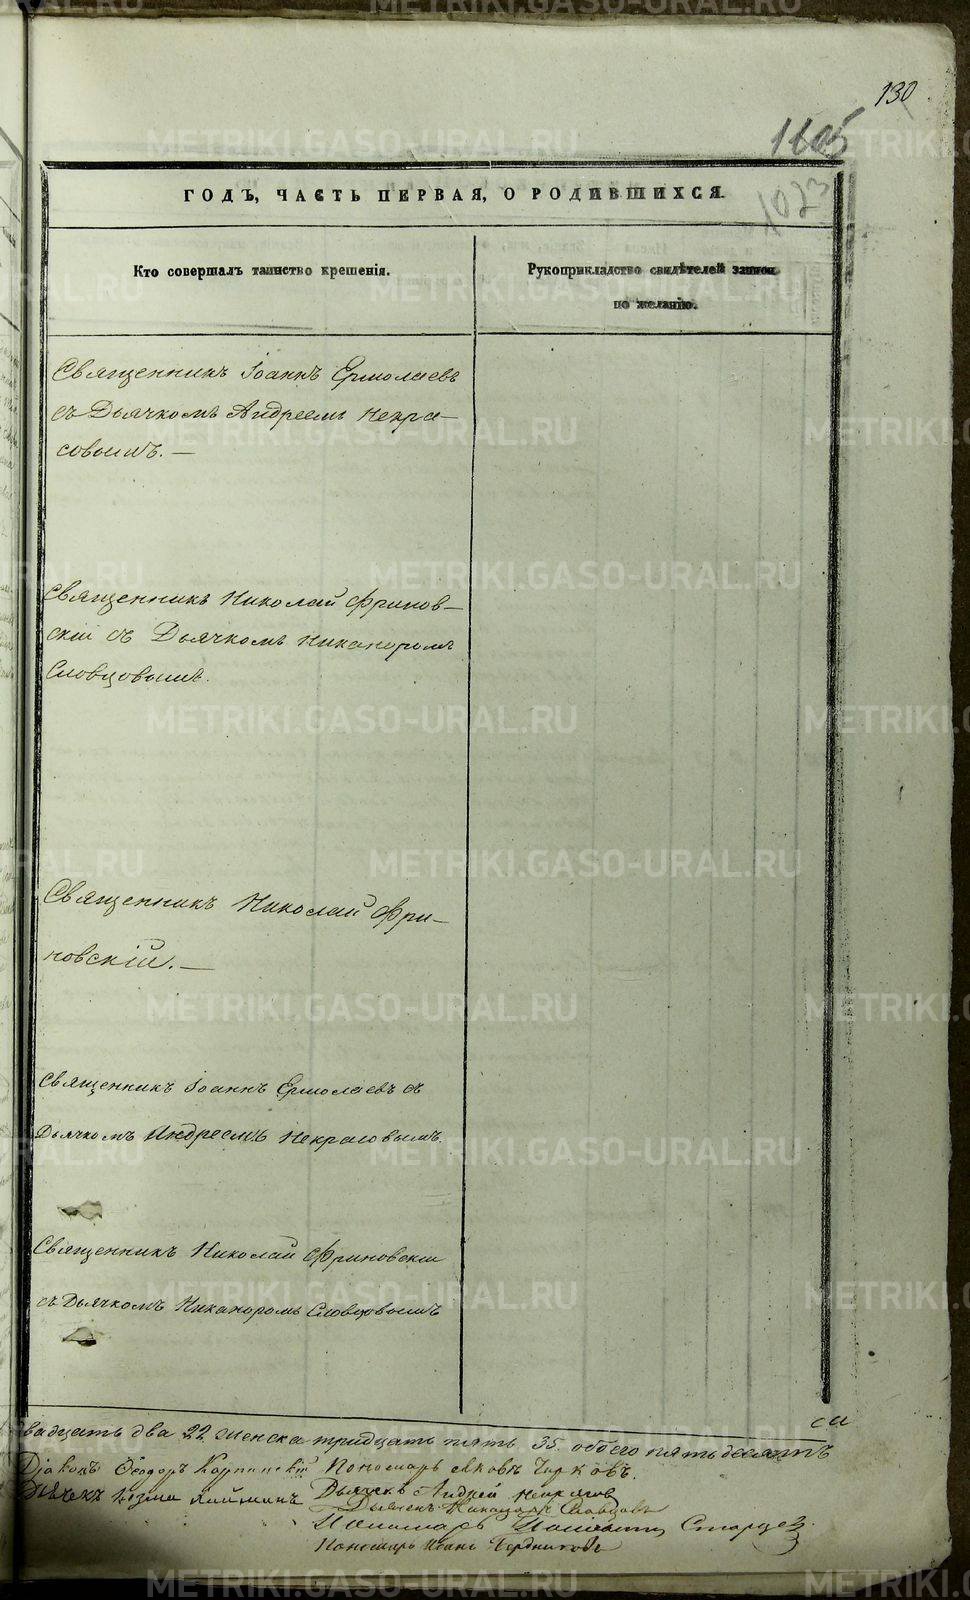 130
1605
1023
ГОДЪ, ЧАСТЬ ПЕРВАЯ, О РОДИВШИХСЯ.
Кто совершалъ таинство крещенія.
Рукоприкладство свидѣтелей записи
по желанію.
Священникъ Іоаннъ Ермолаевъ
съ Дьячкомъ Андреемъ Некра-
совымъ. —
Священникъ Николай Фринов-
скій съ Дьячкомъ Никаноромъ
Словцовымъ.
Священникъ Николай Фри-
новскій. —
Священникъ Іоаннъ Ермолаевъ съ
Дьячкомъ Андреемъ Некрасовымъ.
Священникъ Николай Фриновскій
съ Дьячкомъ Никаноромъ Словцовымъ
вадцать два 22 женска тридцать пять 35. обоего пятьдесятъ
Діаконъ Ѳеодоръ Пономарь Яковъ Чирковъ.
Дьячекъ Козма Дьячекъ Андрей Некрасов
Дьячекъ Никаноръ Словцовъ
Пономарь Старцев.
Пономарь Иванъ Бердниковъ
METRIKI.GASO-URAL.RU